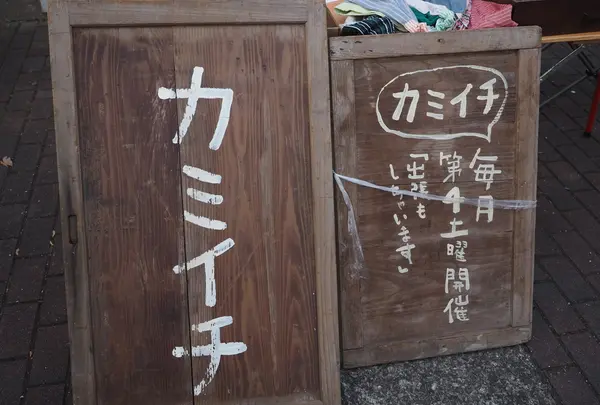 カミイチ
カミイチ
毎月
第4土曜開催
「出張も
しちゃいます」